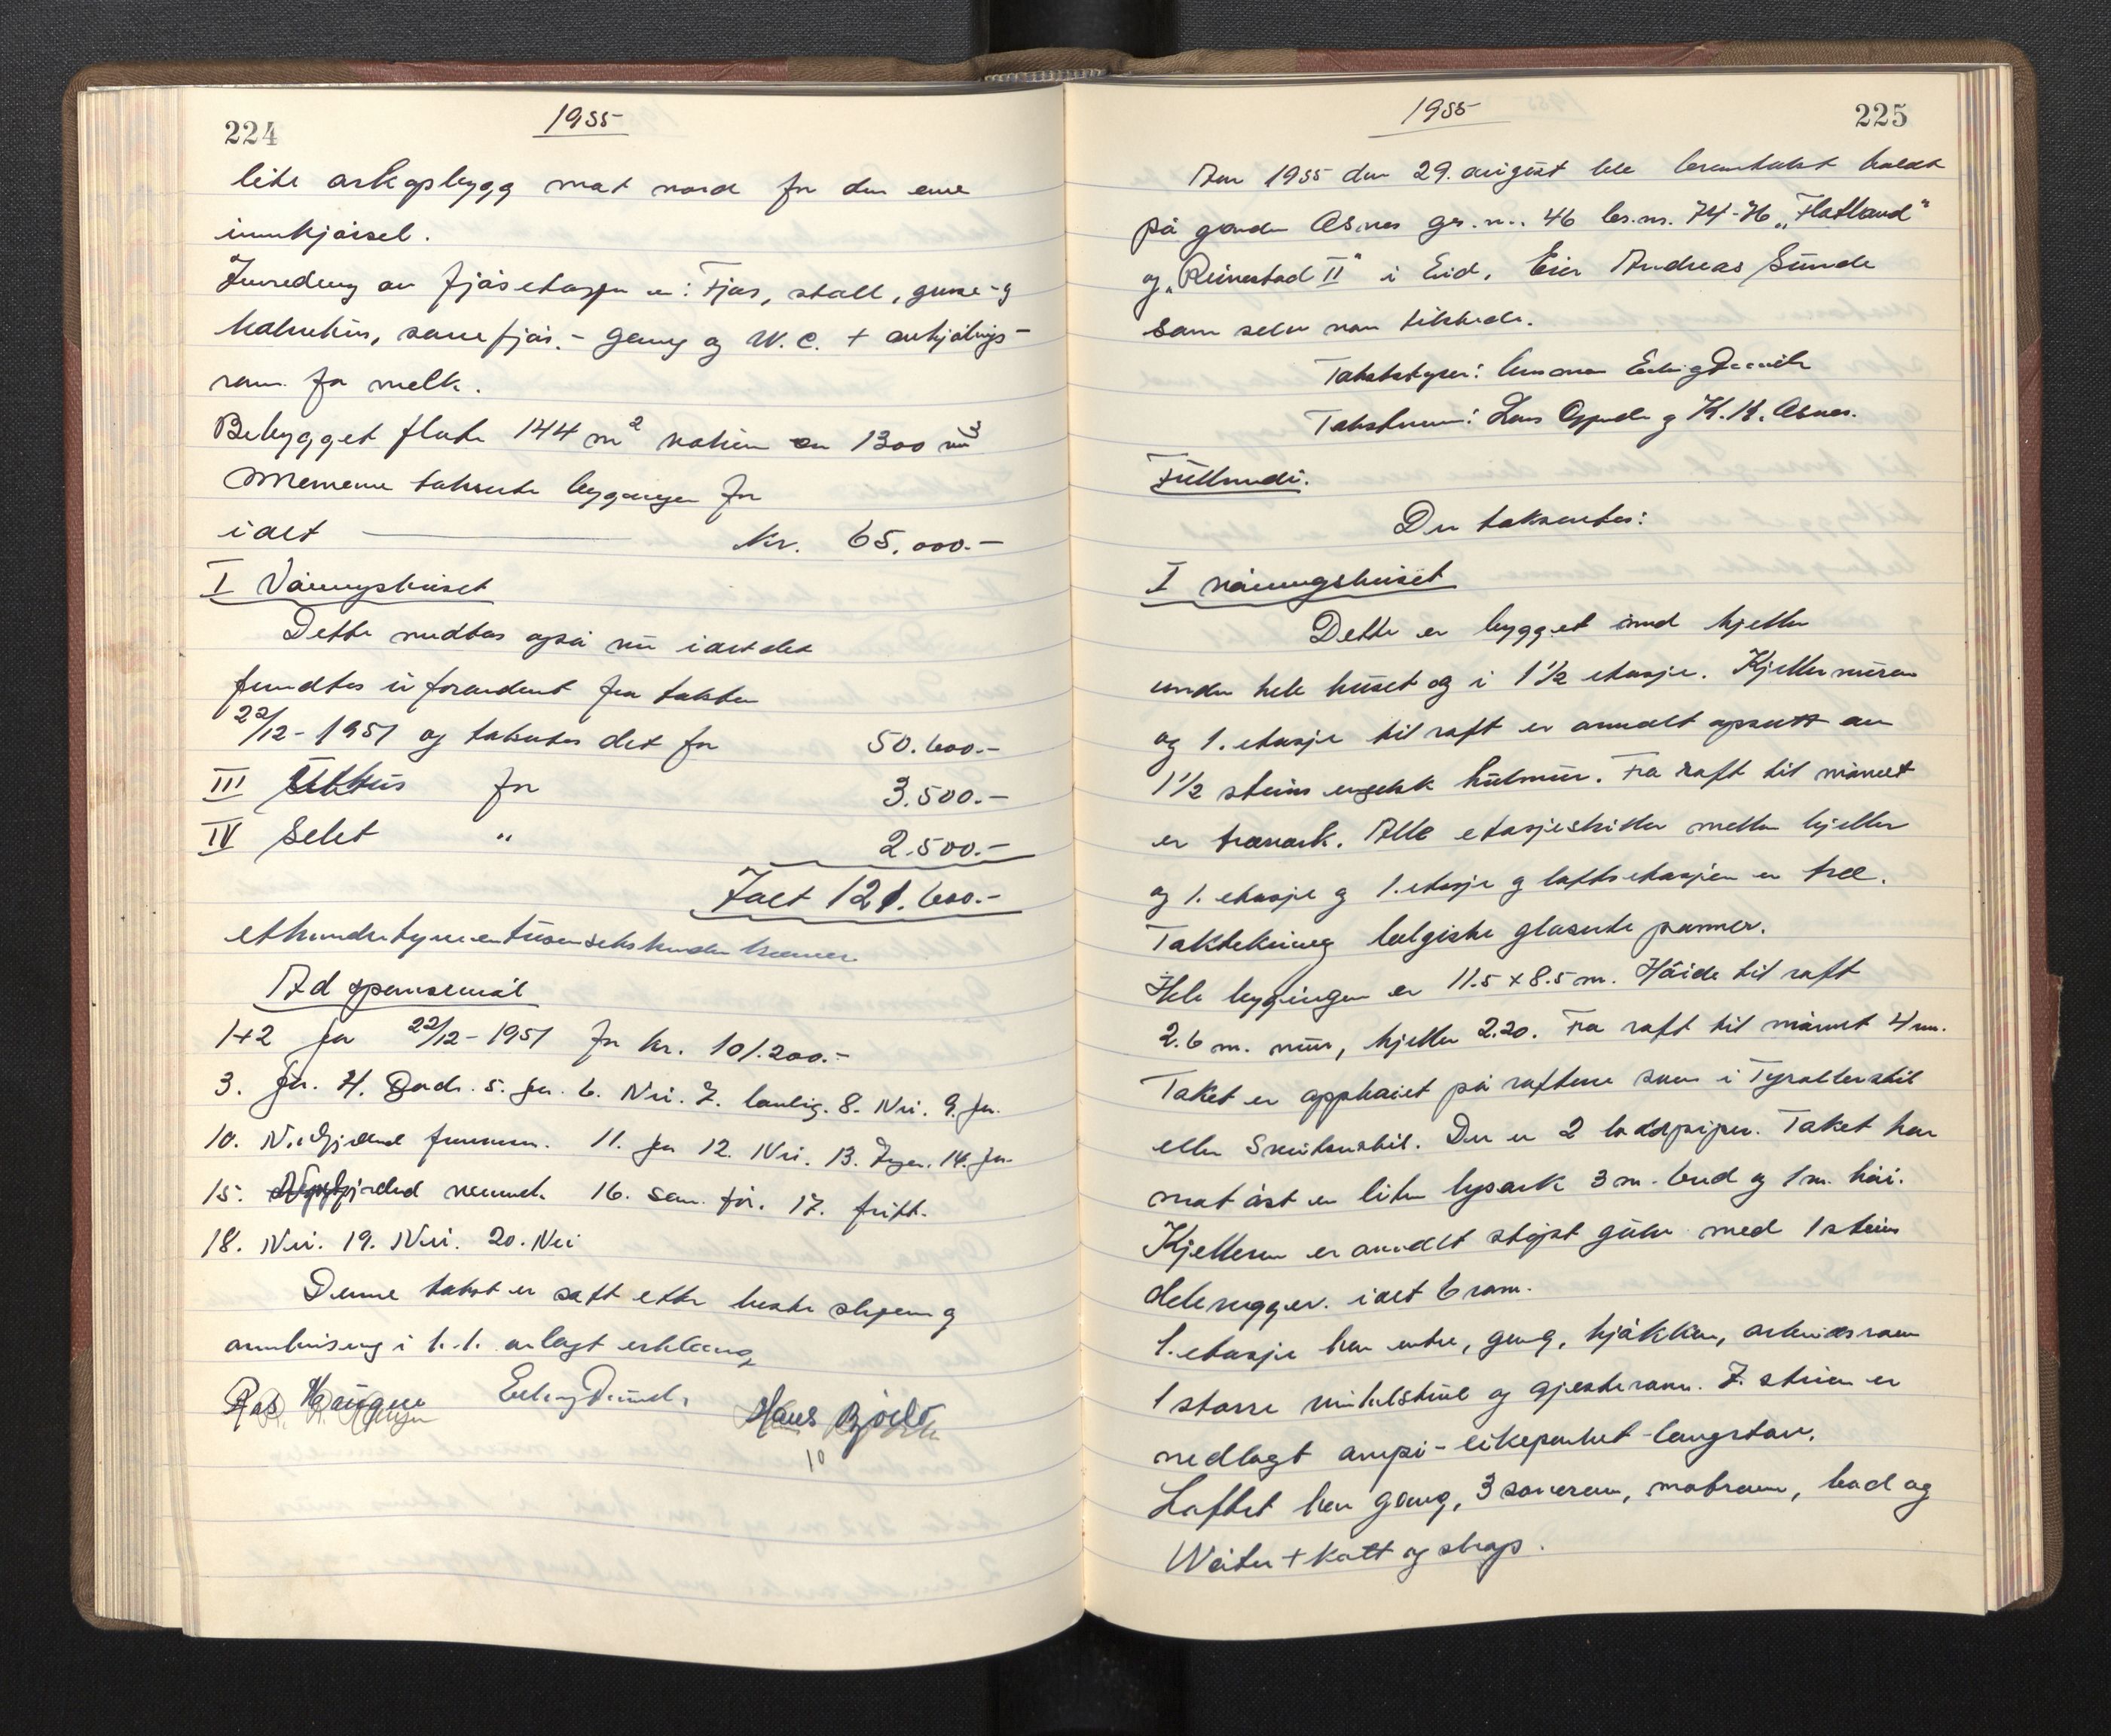 224
1955
lite arkopbygg mot nord for den ene
innkjørsel.
Innredning av fjøsetasjen er: Fjøs, stall, grise- og
kalvehus, sauefjøs. - gang og W.C. + avkjølings-
rom for melk.
Bebygget flate 144 m² volum er 1300 m³
Mennene takserte bygningen for
ialt kr. 65.000.-
I Våningshuset
Dette også nu i det
fra taksten
22/12-1951 og takseres det for 50.600.-
III Ildhus for 3.500.-
IV Selet " 2.500.-
Ialt 121.600.-
ethundretyveentusensekshundre kroner
Ad spørsmål
1+2 Ja 22/12-1951 for kr. 101.200.-
3. Ja. 4. Godt. 5. Ja. 6. Nei. 7. 8. Nei. 9. Ja.
10. 11. Ja 12. Nei. 13. Ingen. 14. Ja.
15. nevnnt. 16. Som før. 17. fritt.
18. Nei. 19. Nei. 20. Nei
Denne takst er satt etter beste skjønn og
i h.t. avlagt erklæring
Ras. Haugen Erling Hans Bjørlo
10
1955
225
År 1955 den 29. august ble branntakst holdt
på garden Åsnes gr.nr. 46 br.nr. 74-76 „Flatland"
og „Reinestad II" i Eid. Eier Andreas Sunde
som selv var tilstede.
Takstbestyrer: lensmann Erling
Takstmenn: Lars og K. K. Åsnes.
Fullmakt.
Der takseertes:
I våningshuset
Dette er bygget med kjeller
under hele huset og i 1 1/2 etasje. Kjellermuren
og 1. etasje til raft er anvendt oppsatt av
1 1/2 steins engelsk hulmur. Fra raft til mønet
er treverk. Alle etasjeskiller mellom kjeller
og 1. etasje og 1. etasje og loftsetasjen er tre.
Taktekning belgiske glaserte panner.
Hele bygningen er 11.5 x 8.5 m. Høide til raft
2.6 m. mur, kjeller 2.20. Fra raft til mønet 4 m.
Taket er opphøiet på raftene som i Tyrollerstil
eller Sveitserstil. Der er 2 teglpiper. Taket har
mot øst en liten lysark 3 m. bred og 1 m. høi.
Kjelleren er anvendt støpt gulv med 1 steins
delevegger. ialt 6 rom.
1. etasje har entre, gang, kjøkken, arbeidsrom
1 større vinkelstue og gjesterom. I stuen er
nedlagt eikeparket - langstav.
Loftet har gang, 3 soverom, matrom, bad og
Water + kott og skap.